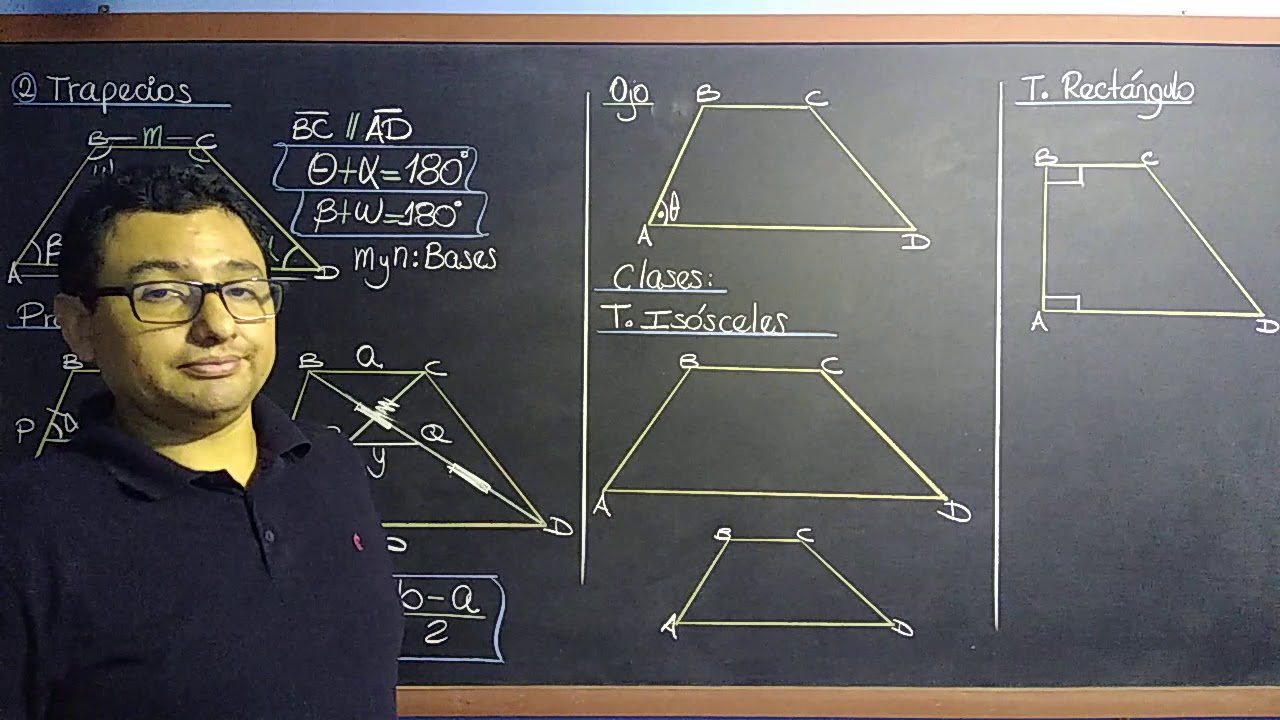 ② Trapecios
B m C
A β D
BC // AD
θ+α=180°
β+ω=180°
m y n: Bases
B
P θ
B a C
Q
y
D
b-a
2
Ojo
B C
θ
A D
Clases:
T. Isósceles
B C
A D
B C
A D
T. Rectángulo
B C
A D